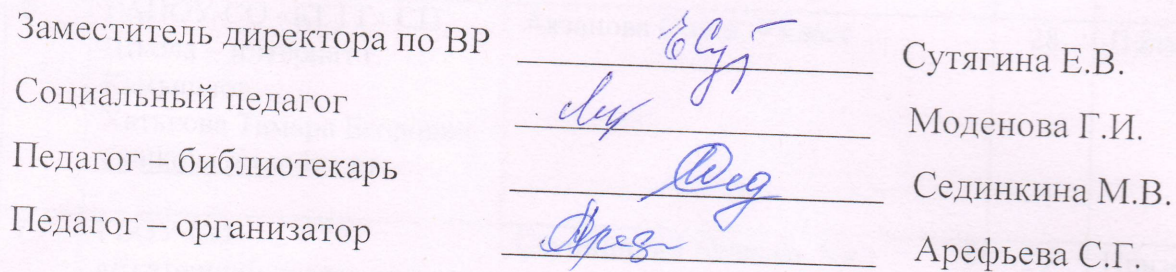 Заместитель директора по ВР Сутягина Е.В.
Социальный педагог Моденова Г.И.
Педагог – библиотекарь Сединкина М.В.
Педагог – организатор Арефьева С.Г.